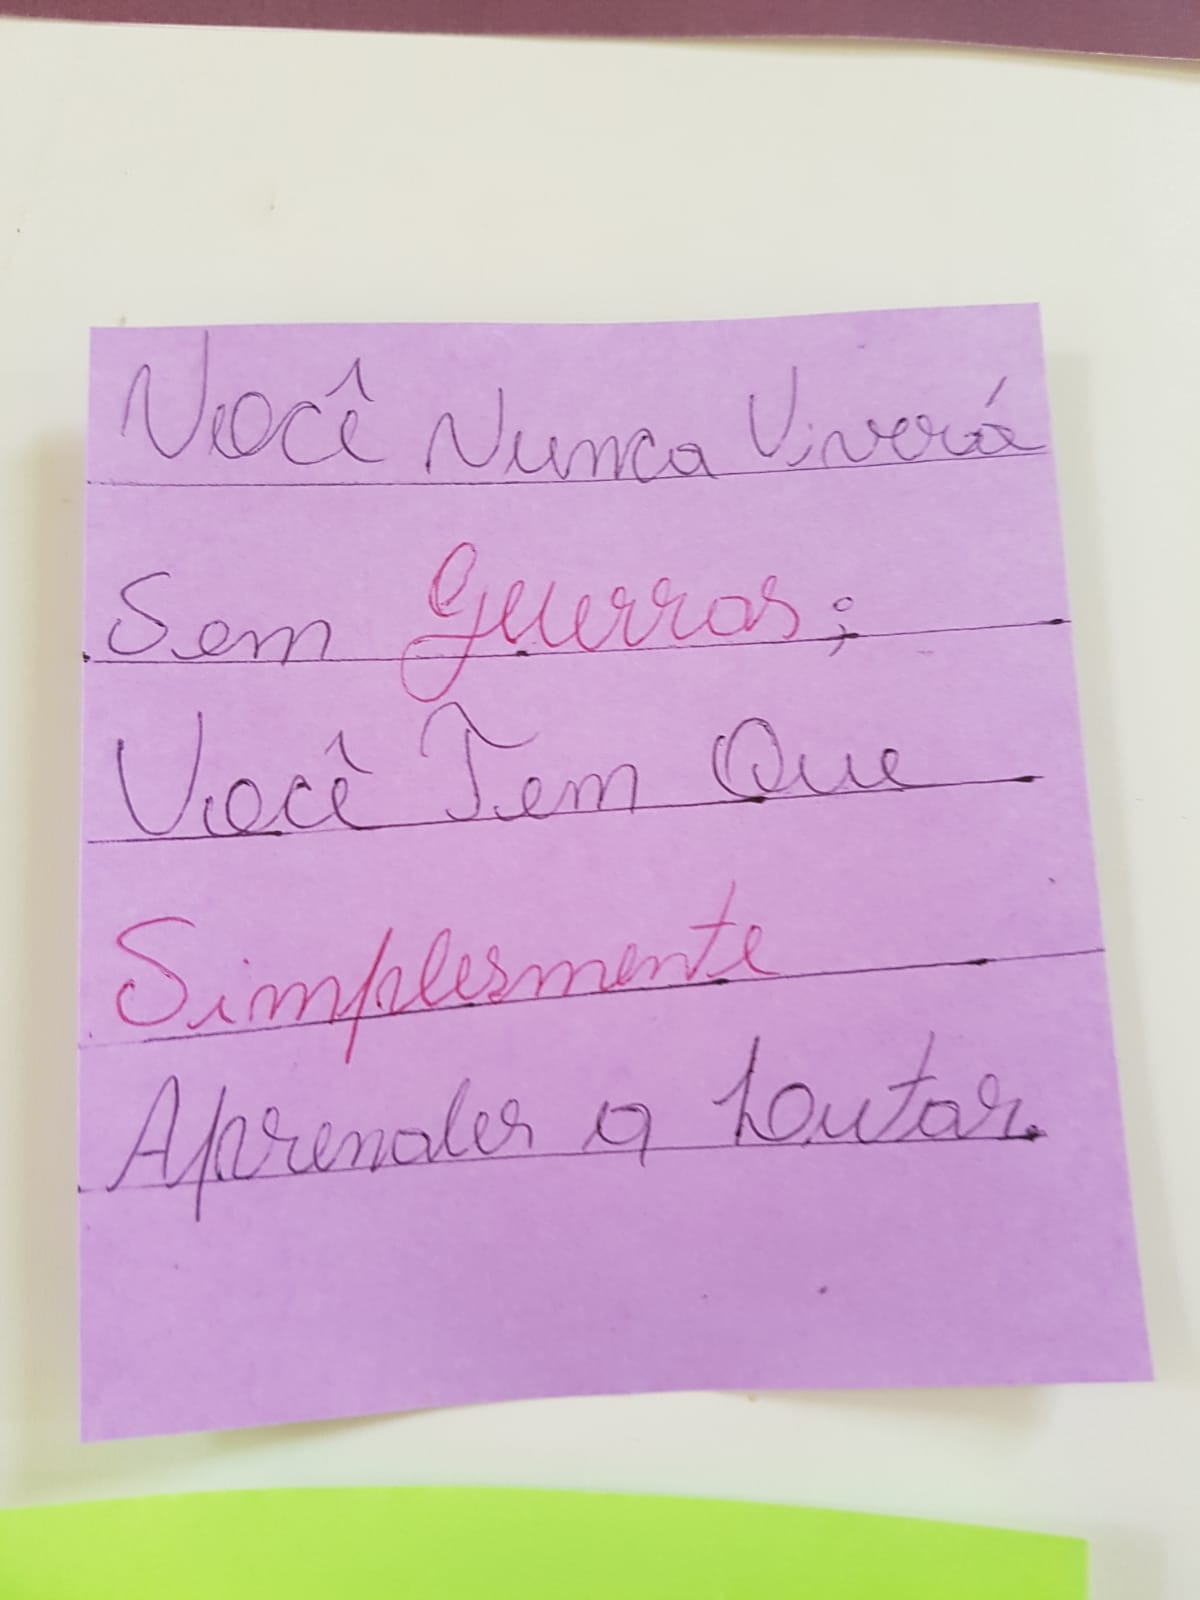 Você Nunca Viverá
Sem Guerras;
Você Tem Que
Simplesmente
Aprender a Lutar.